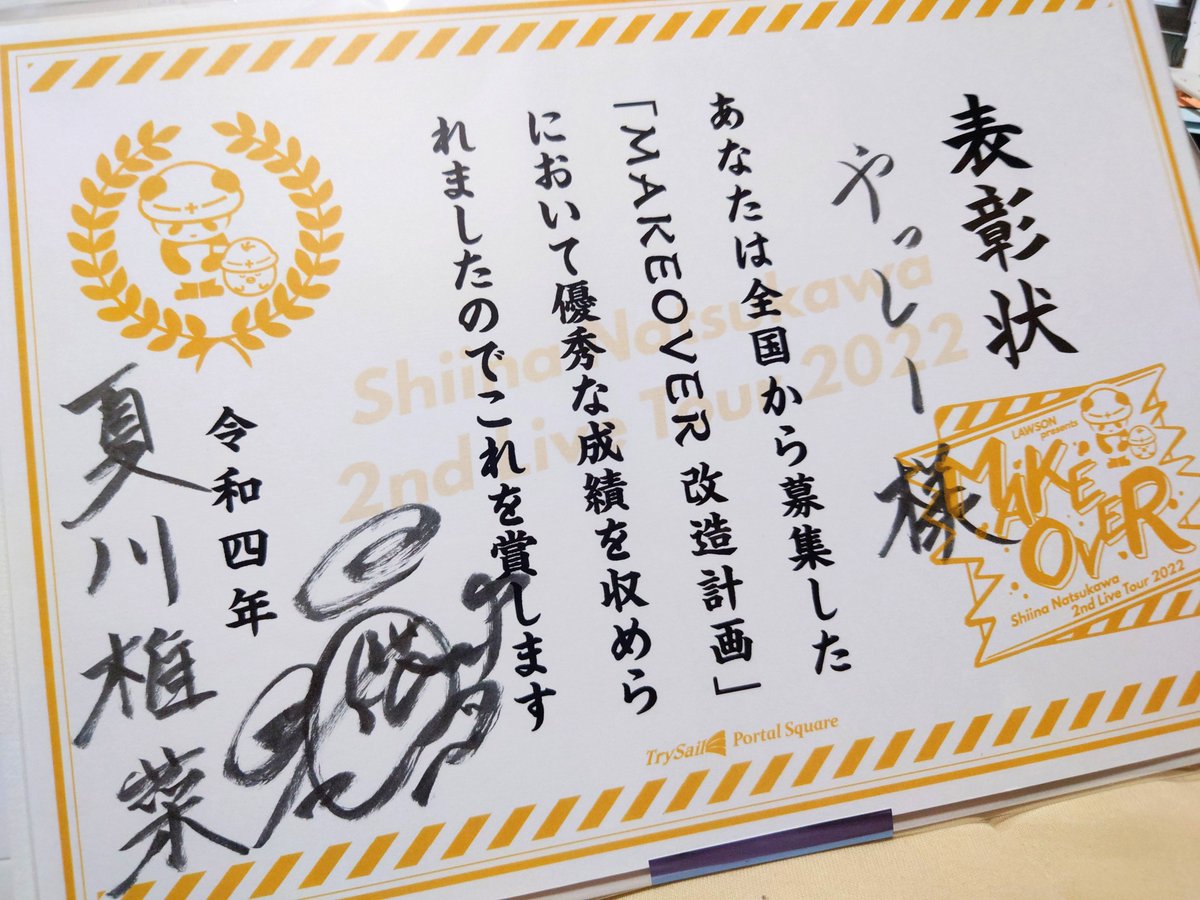 表彰状
やっしー 様
あなたは全国から募集した
「MAKEOVER 改造計画」
において優秀な成績を収めら
れましたのでこれを賞します
令和四年
夏川椎菜
Shiina Natsukawa
2nd Live Tour 2022
LAWSON
presents
MAKE
OVER
Shiina Natsukawa
2nd Live Tour 2022
TrySail Portal Square